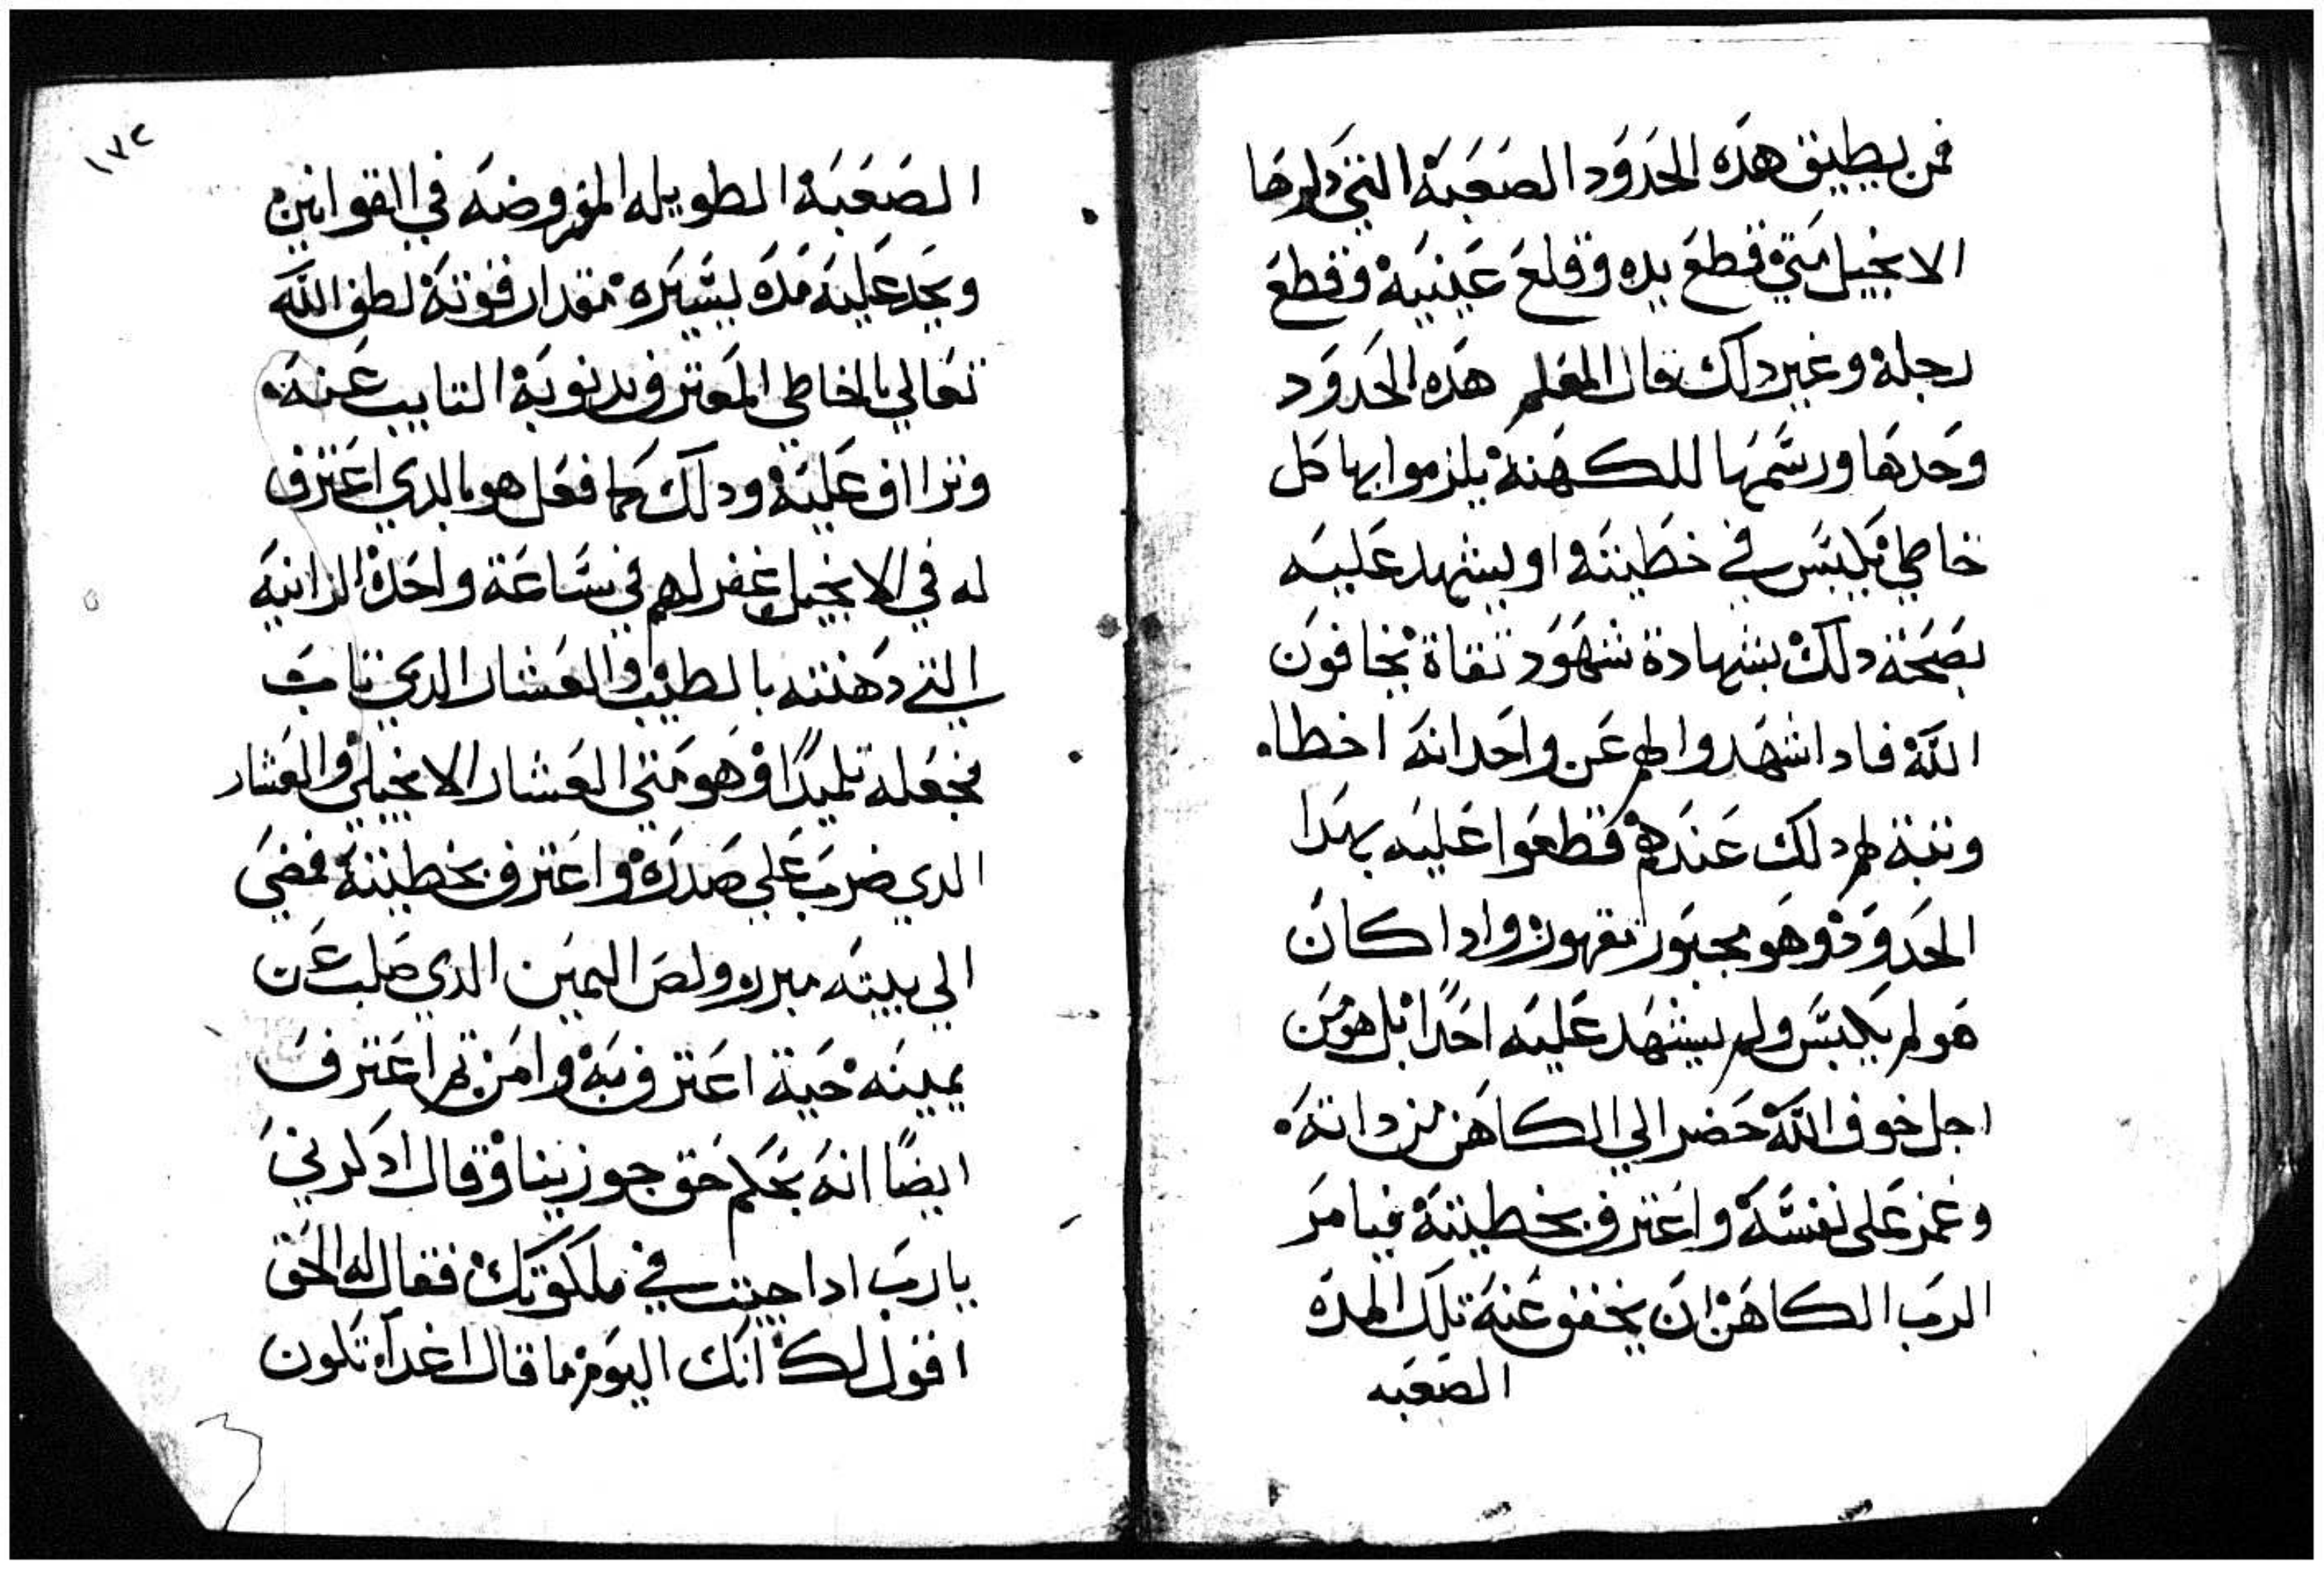 فمن يطيق هده الحدود الصعبة التي دكرها
الانجيل متي قطع يده وقلع عينيه وقطع
رجله وغير دلك قال المعلم هده الحدود
وحدها ورسمها للكهنة يلزموا بها كل
خاطي يكبس في خطيته او يشهد عليه
بصحة دلك بشهادة شهود تقاة يخافون
الله فادا شهدوا لهم عن واحد انه اخطا
وتبة لهم دلك عندهم قطعوا عليه بهدا
الحدود وهو مجبور مقهور وادا كان
هو لم يكبس ولم يشهد عليه احدا بل هو من
اجل خوف الله حضر الي الكاهن من داته
وغمز على نفسه واعترف بخطيته فيامر
الرب الكاهن ان يخفف عنه تلك المدة
الصعبه
١٧٢
الصعبة الطويله المفروضه في القوانين
ويحد عليه مده يسيره مقدار قوته لطف الله
تعالي بالخاطي المعترف بدنوبه التايب عنه
وترااف عليه ودلك كما فعل هو بالدي اعترف
له في الانجيل غفر لهم في ساعة واحدة الزانيه
التي دهنته بالطيب والعشار الدي تاب
فجعله تلميدًا وهو متى العشار الانجيلي والعشار
الدي ضرب علي صدره واعترف بخطيته فمضي
الي بيته مبرر ولص اليمين الدي صلب عن
يمينه حية اعترف به وامن تم اعترف
ايضًا انه بحكم حق جوزينا وقال ادكرني
يا رب ادا جيت في ملكوتك فقال له الحق
اقول لك انك اليوم ما قال غدًا تكون